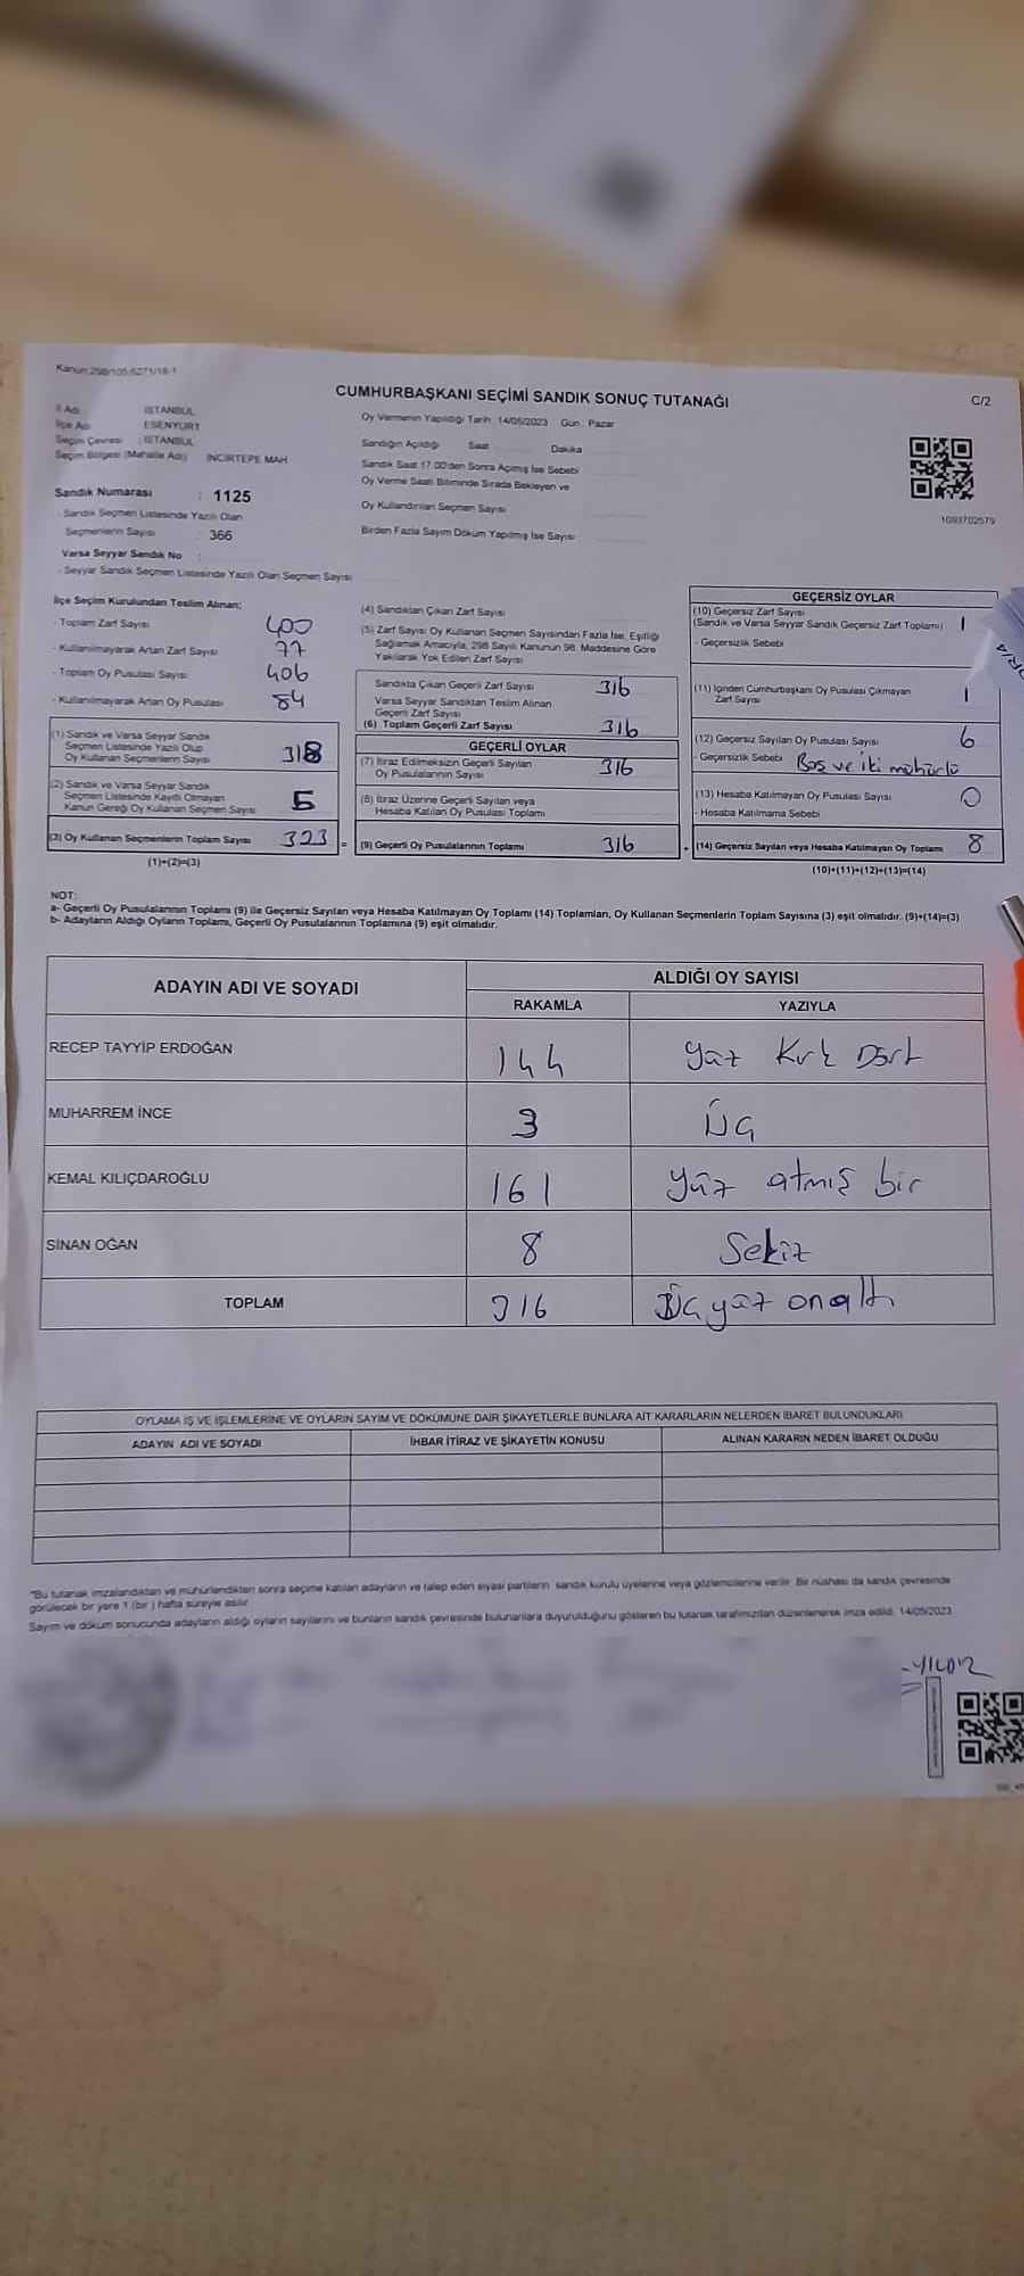 Kanun:298/105;6271/18-1
CUMHURBAŞKANI SEÇİMİ SANDIK SONUÇ TUTANAĞI
C/2
İl Adı : İSTANBUL
İlçe Adı : ESENYURT
Seçim Çevresi : İSTANBUL
Seçim Bölgesi (Mahalle Adı) İNCİRTEPE MAH.
Sandık Numarası : 1125
- Sandık Seçmen Listesinde Yazılı Olan
Seçmenlerin Sayısı : 366
Varsa Seyyar Sandık No :
- Seyyar Sandık Seçmen Listesinde Yazılı Olan Seçmen Sayısı
Oy Vermenin Yapıldığı Tarih: 14/05/2023 Gün : Pazar
Sandığın Açıldığı Saat Dakika
Sandık Saat 17.00'den Sonra Açılmış İse Sebebi
Oy Verme Saati Bitiminde Sırada Bekleyen ve
Oy Kullandırılan Seçmen Sayısı
Birden Fazla Sayım Döküm Yapılmış İse Sayısı
1093702579
İlçe Seçim Kurulundan Teslim Alınan;
- Toplam Zarf Sayısı 400
- Kullanılmayarak Artan Zarf Sayısı 77
- Toplam Oy Pusulası Sayısı 406
- Kullanılmayarak Artan Oy Pusulası 84
(1) Sandık ve Varsa Seyyar Sandık
Seçmen Listesinde Yazılı Olup
Oy Kullanan Seçmenlerin Sayısı 318
(2) Sandık ve Varsa Seyyar Sandık
Seçmen Listesinde Kayıtlı Olmayan
Kanun Gereği Oy Kullanan Seçmen Sayısı 5
(3) Oy Kullanan Seçmenlerin Toplam Sayısı 323 =
(1)+(2)=(3)
(4) Sandıktan Çıkan Zarf Sayısı
(5) Zarf Sayısı Oy Kullanan Seçmen Sayısından Fazla İse, Eşitliği
Sağlamak Amacıyla, 298 Sayılı Kanunun 98. Maddesine Göre
Yakılarak Yok Edilen Zarf Sayısı
Sandıkta Çıkan Geçerli Zarf Sayısı 316
Varsa Seyyar Sandıktan Teslim Alınan
Geçerli Zarf Sayısı
(6) Toplam Geçerli Zarf Sayısı 316
GEÇERLİ OYLAR
(7) İtiraz Edilmeksizin Geçerli Sayılan
Oy Pusulalarının Sayısı 316
(8) İtiraz Üzerine Geçerli Sayılan veya
Hesaba Katılan Oy Pusulası Toplamı
(9) Geçerli Oy Pusulalarının Toplamı 316 +
GEÇERSİZ OYLAR
(10) Geçersiz Zarf Sayısı
(Sandık ve Varsa Seyyar Sandık Geçersiz Zarf Toplamı) 1
- Geçersizlik Sebebi
(11) İçinden Cumhurbaşkanı Oy Pusulası Çıkmayan
Zarf Sayısı 1
(12) Geçersiz Sayılan Oy Pusulası Sayısı 6
- Geçersizlik Sebebi Boş ve iki mühürlü
(13) Hesaba Katılmayan Oy Pusulası Sayısı 0
- Hesaba Katılmama Sebebi
(14) Geçersiz Sayılan veya Hesaba Katılmayan Oy Toplamı 8
(10)+(11)+(12)+(13)=(14)
NOT:
a- Geçerli Oy Pusulalarının Toplamı (9) ile Geçersiz Sayılan veya Hesaba Katılmayan Oy Toplamı (14) Toplamları, Oy Kullanan Seçmenlerin Toplam Sayısına (3) eşit olmalıdır. (9)+(14)=(3)
b- Adayların Aldığı Oyların Toplamı, Geçerli Oy Pusulalarının Toplamına (9) eşit olmalıdır.
ADAYIN ADI VE SOYADI
ALDIĞI OY SAYISI
RAKAMLA YAZIYLA
RECEP TAYYİP ERDOĞAN 144 yüz kırk Dört
MUHARREM İNCE 3 Üç
KEMAL KILIÇDAROĞLU 161 yüz atmış bir
SİNAN OĞAN 8 Sekiz
TOPLAM 316 Üçyüz onaltı
OYLAMA İŞ VE İŞLEMLERİNE VE OYLARIN SAYIM VE DÖKÜMÜNE DAİR ŞİKAYETLERLE BUNLARA AİT KARARLARIN NELERDEN İBARET BULUNDUKLARI
ADAYIN ADI VE SOYADI İHBAR İTİRAZ VE ŞİKAYETİN KONUSU ALINAN KARARIN NEDEN İBARET OLDUĞU
"Bu tutanak imzalandıktan ve mühürlendikten sonra seçime katılan adayların ve talep eden siyasi partilerin sandık kurulu üyelerine veya gözlemcilerine verilir. Bir nüshası da sandık çevresinde
görülecek bir yere 1 (bir ) hafta süreyle asılır.
Sayım ve döküm sonucunda adayların aldığı oyların sayılarını ve bunların sandık çevresinde bulunanlara duyurulduğunu gösteren bu tutanak tarafımızdan düzenlenerek imza edildi. 14/05/2023
YILDIZ